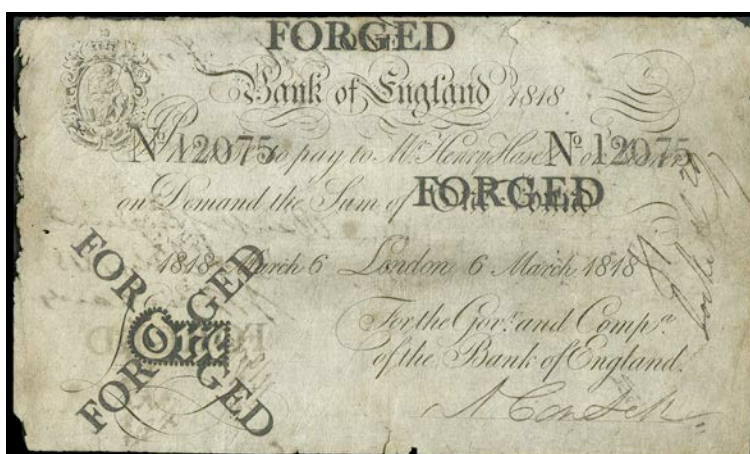 FORGED
Bank of England 1818
Nº 12075 to pay to Mr. Henry Hase Nº 12075
on Demand the Sum of One Pound
FORGED
1818 March 6 London 6 March 1818
FORGED
For the Govr. and Compa.
One
of the Bank of England.
FORGED